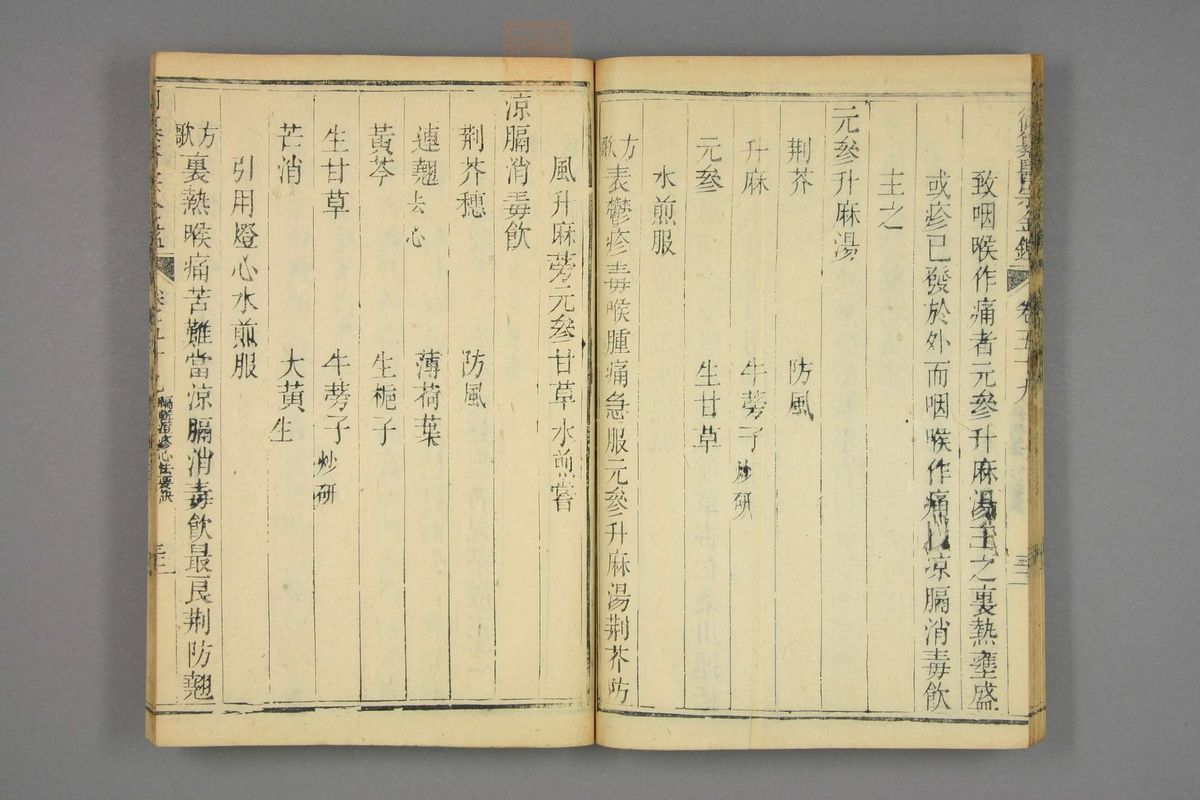 致咽喉作痛者元參升麻湯主之裏熱壅盛
或疹已發於外而咽喉作痛以凉膈消毒飲
主之
元參升麻湯
荆芥 防風
升麻 牛蒡子炒研
元參 生甘草
水煎服
方歌 表鬱疹毒喉腫痛急服元參升麻湯荆芥防
風升麻蒡元參甘草水煎嘗
凉膈消毒飲
荆芥穗 防風
連翹去心 薄荷葉
黃芩 生梔子
生甘草 牛蒡子炒研
芒消 大黃生
引用燈心水煎服
方歌 裏熱喉痛苦難當凉膈消毒飲最良荆防翹
編輯痘疹心法要訣